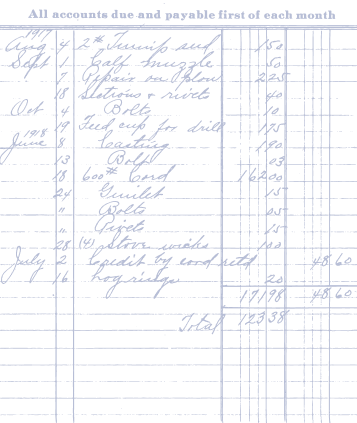 All accounts due and payable first of each month
1917
Aug. 4 2# Turnip seed 150
Sept 1 Calf muzzle 50
7 Repairs on plow 225
18 & rivets 40
Oct 4 Bolts 10
19 Feed cup for drill 175
1918
June 8 Casting 190
13 Bolt 03
18 600# Cord 16200
24 Gimlet 15
" Bolts 05
" Rivets 15
28 (4) Stove wicks 100
July 2 Credit by cord retd 48 60
16 hog rings 20
17198 48 60
Total 12338